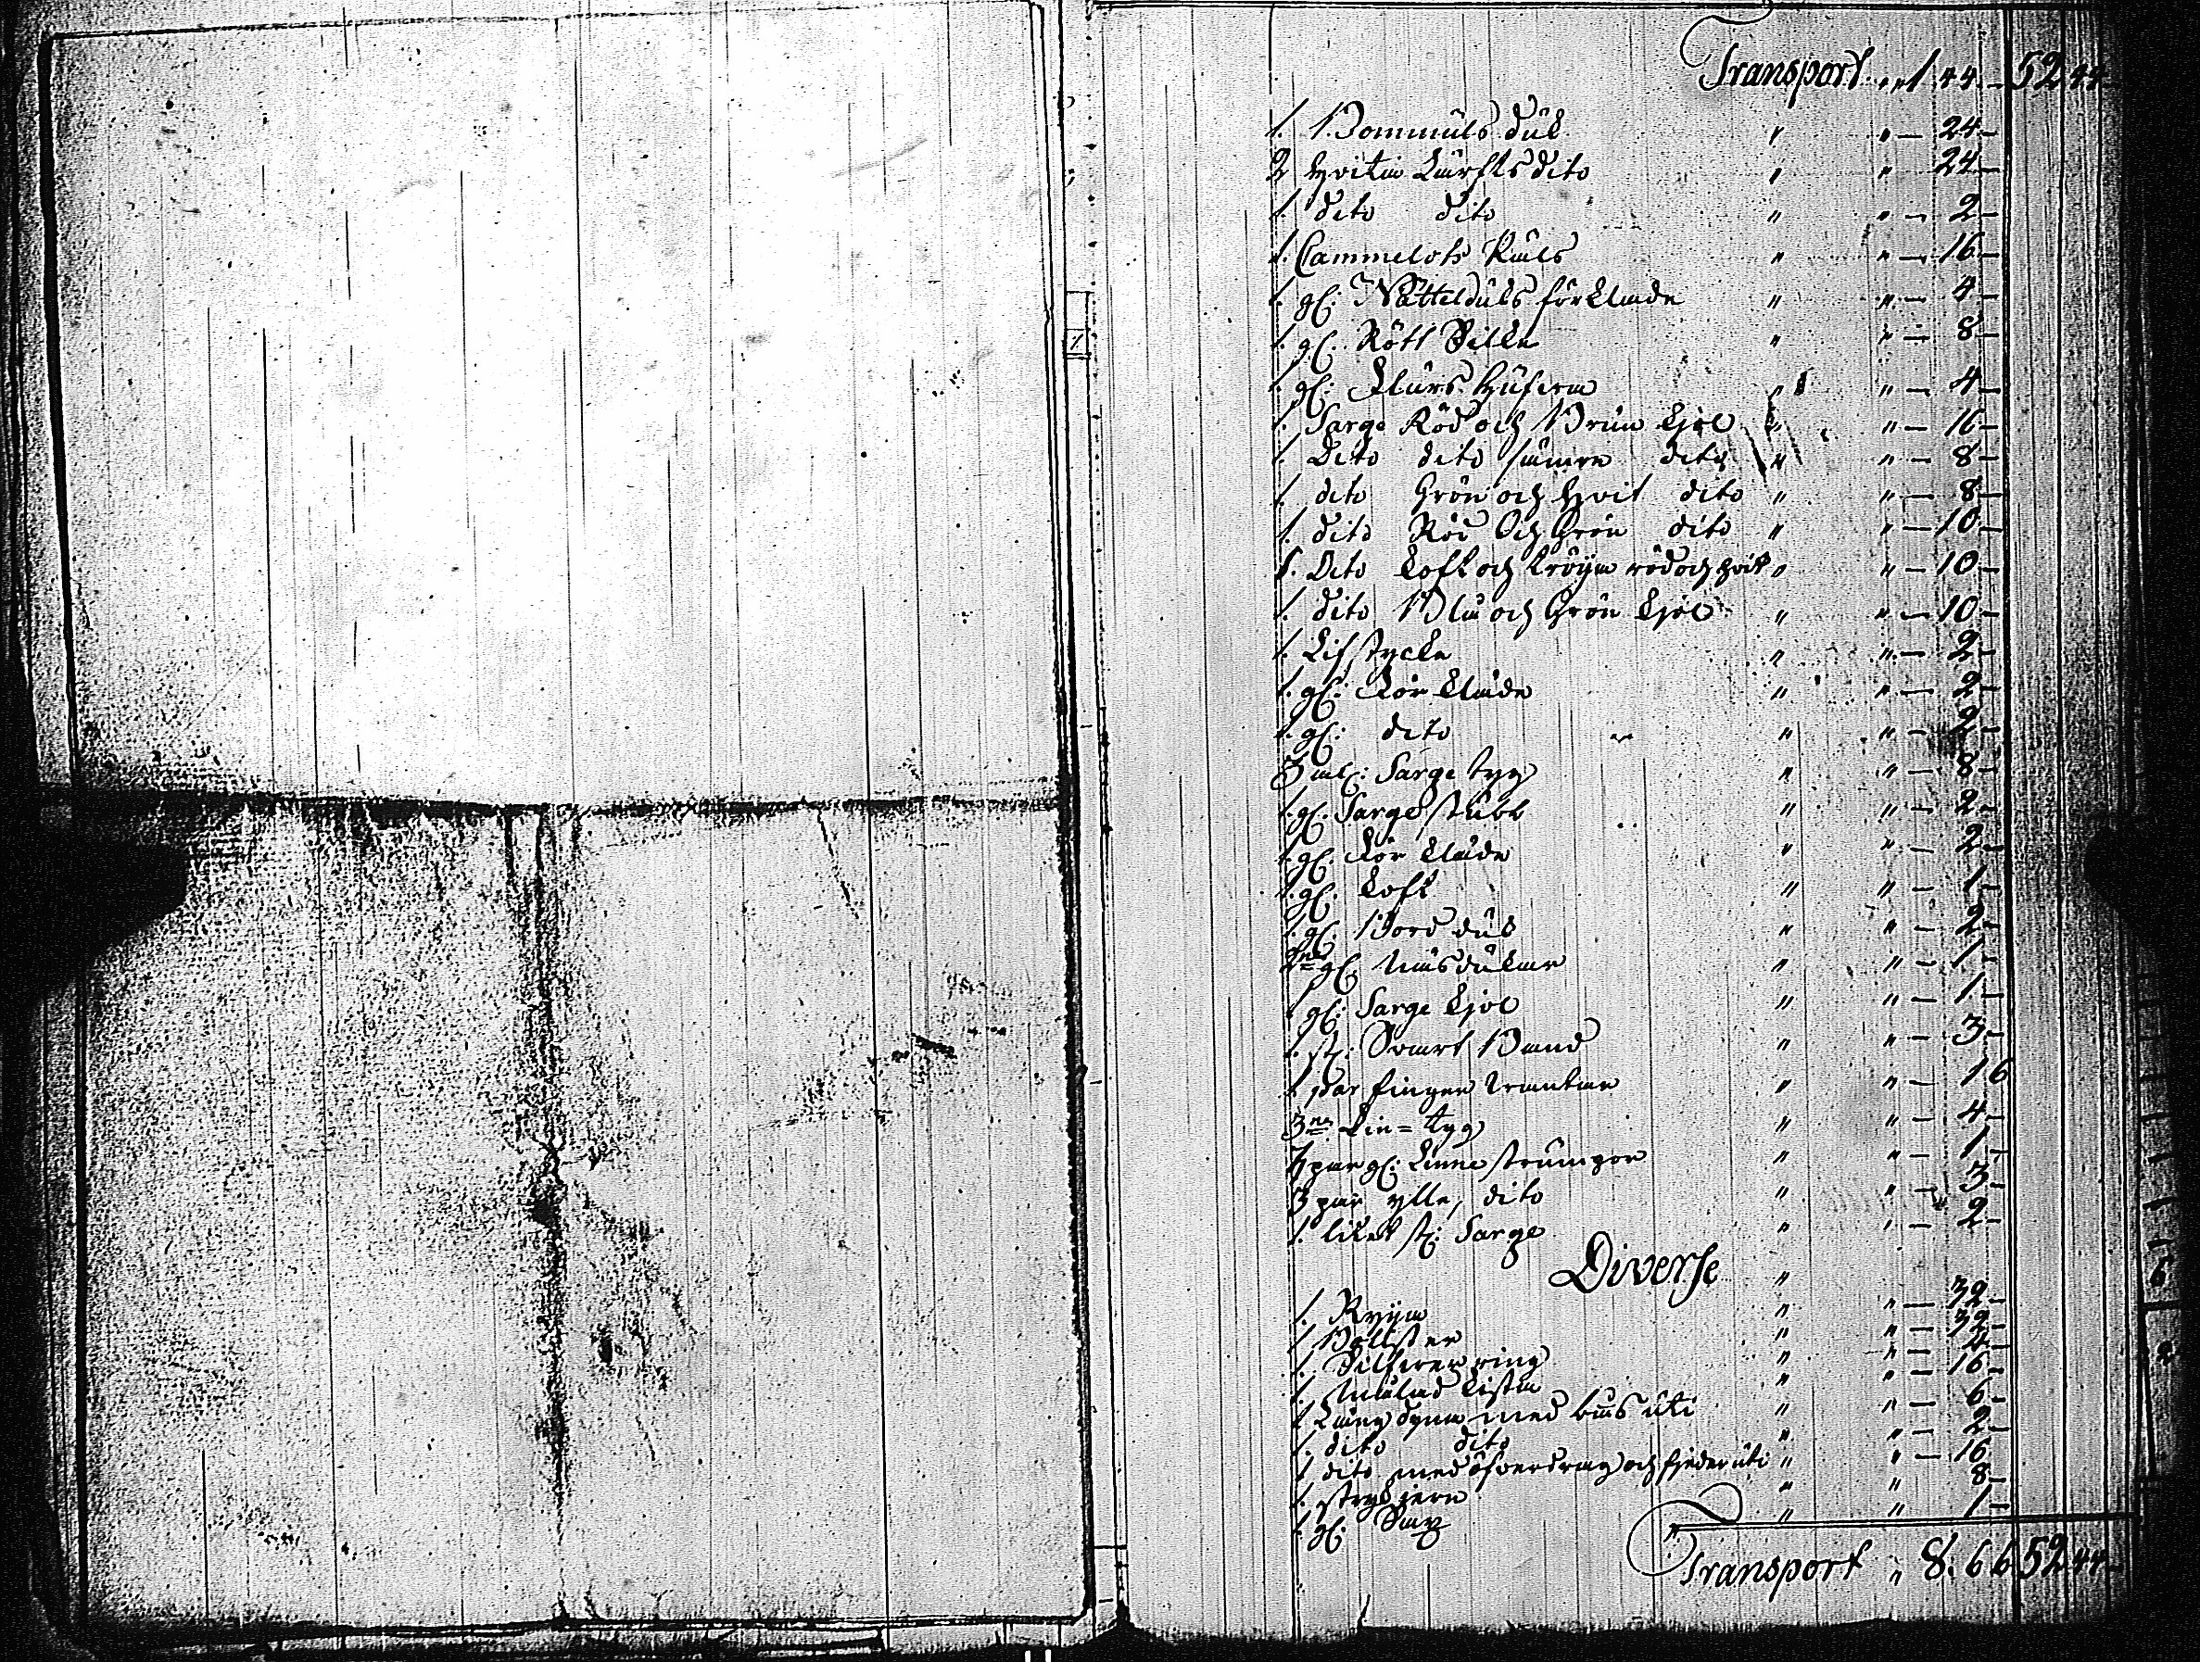 Transport „ 1 44 – 52 44
1. Bommuls duk „ „ — 24 —
2 hvita Lärfts dito „ „ 24 —
1. dito dito „ „ — 2 —
1. Cammelots „ „ — 16 —
1. gl: Nättelduks förkläde „ „ — 4 —
1. gl: Rött Silke „ „ — 8 —
1. gl: „ „ — 4 —
1. Sarge Röd och Brun kjol „ „ — 16 —
1. Dito dito sämre dito „ „ — 8 —
1. dito Grön och hvit dito „ „ — 8 —
1. dito Röd Och Grön dito „ „ — 10 —
1. Dito koft och tröja röd och hvit „ „ — 10 —
1. dito Blå och Grön kjol „ „ — 10 —
1. Lifstycke „ „ — 2 —
1. gl: För kläde „ „ — 2 —
1. gl: dito „ „ — 2 —
3 al: Sarge tyg „ „ — 8 —
1 gl: Sarge stubb „ „ — 2 —
1 gl: För kläde „ „ — 2 —
1. gl: koft „ „ — 1 —
1. gl: Bord duk „ „ — 2 —
gl: Näsdukar „ „ — 1 —
1 gl: Sarge kjol „ „ — 1 —
1. st: Svart Band „ „ — 3 —
1 par finger vantar „ „ — 16
3ne Lin= tyg „ „ — 4 —
par gl: Linne strumpor „ „ — 1 —
3 par ylle, dito „ „ — 3 —
1. litet st: Sarge „ „ — 2 —
Diverse „
1. Ryja „ „ — 32 —
1 Bolster „ „ — 32 —
1. Silfver ring „ „ —
1. Målad kista „ „ — 16 —
1 Läng dyna med bås uti „ „ — 6 —
1. dito dito „ „ — 2 —
1 dito med öfverdrag och fjeder uti „ „ — 16
1. strykjern „ „ 8 —
1. gl: „ „ 1 —
Transport „ 8. 6 6 52 44 —